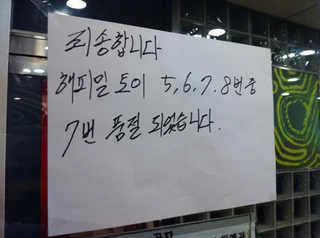 죄송합니다
해피밀 토이 5, 6, 7. 8번 중
7번 품절 되었습니다.